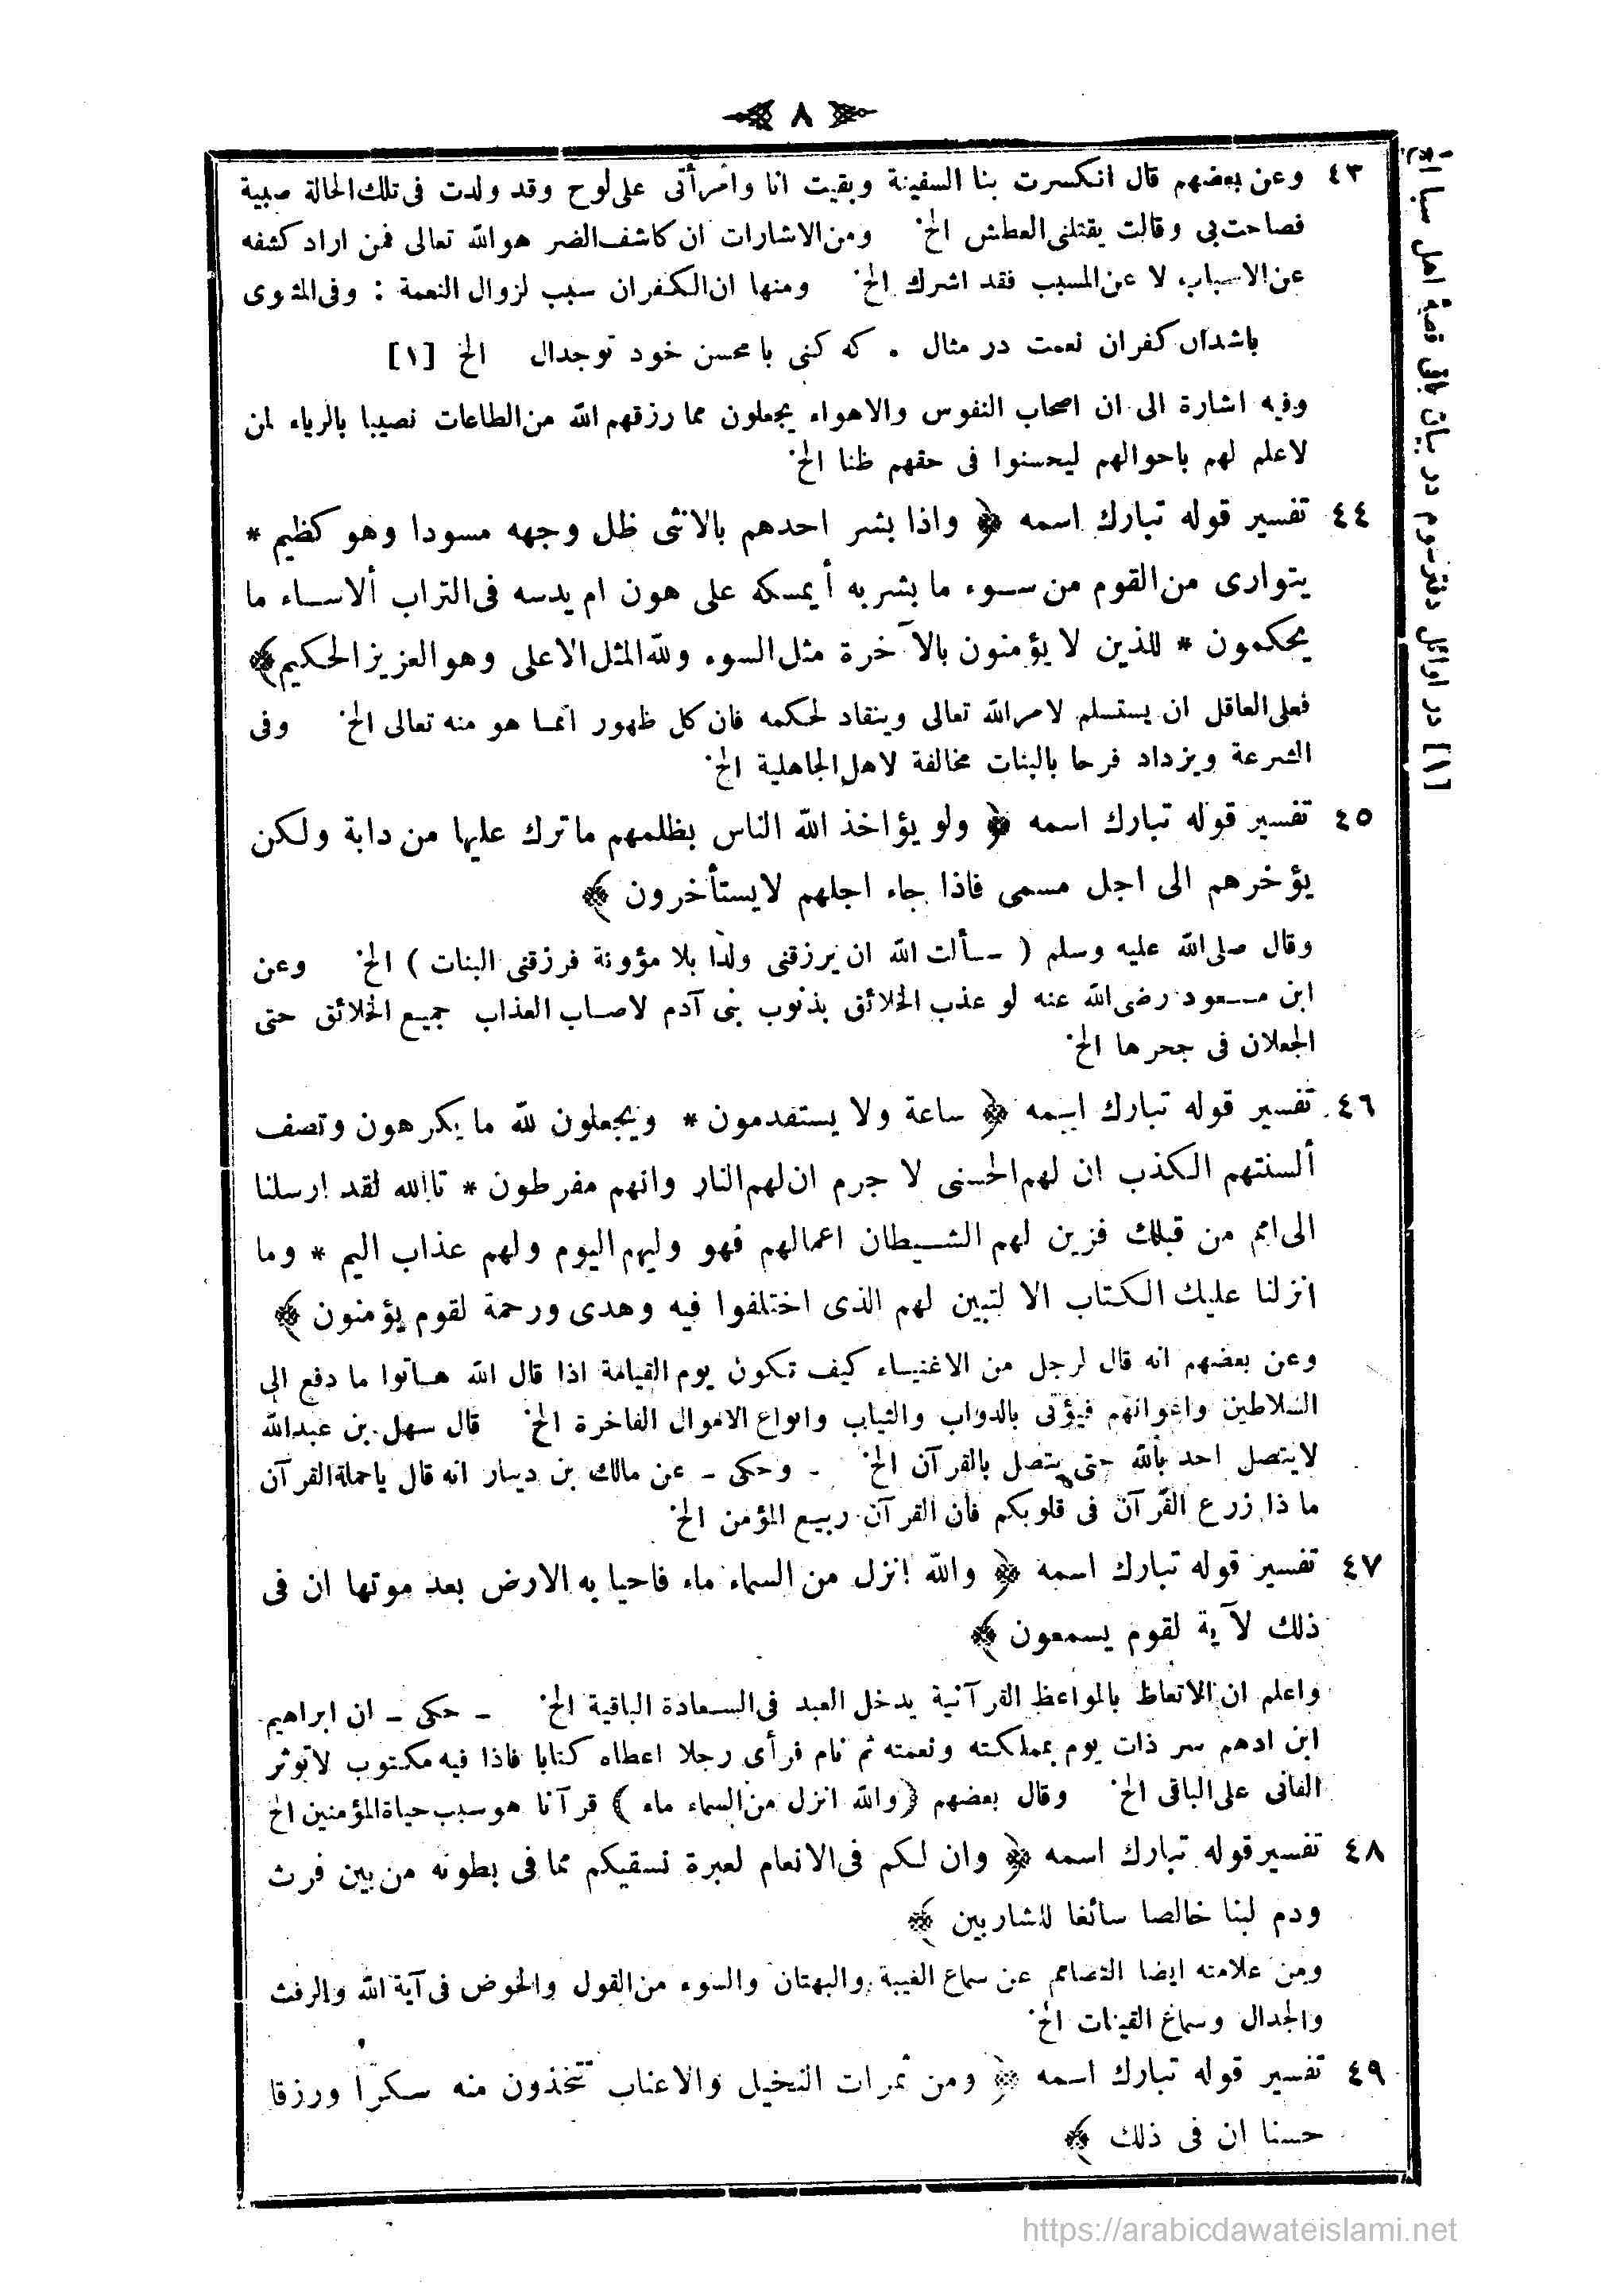 ٨
٤٣ وعن بعضهم قال انكسرت بنا السفينة وبقيت انا وامرأتى على لوح وقد ولدت فى تلك الحالة صبية
فصاحت بى وقالت يقتلنى العطش الخ ومن الاشارات ان كاشف الضر هو الله تعالى فمن اراد كشفه
عن الاسباب لا عن المسبب فقد اشرك الخ ومنها ان الكفران سبب لزوال النعمة : وفى المثنوى
باشدآن كفران نعمت در مثال . كه كنى با محسن خود تو جدال الخ [١]
وفيه اشارة الى ان اصحاب النفوس والاهواء يجعلون مما رزقهم الله من الطاعات نصيبا بالرياء لمن
لاعلم لهم باحوالهم ليحسنوا فى حقهم ظنا الخ
٤٤ تفسير قوله تبارك اسمه ﴿ واذا بشر احدهم بالانثى ظل وجهه مسودا وهو كظيم *
يتوارى من القوم من سوء ما بشر به أيمسكه على هون ام يدسه فى التراب ألاساء ما
يحكمون * للذين لا يؤمنون بالآخرة مثل السوء ولله المثل الاعلى وهو العزيز الحكيم ﴾
فعلى العاقل ان يستسلم لامر الله تعالى وينقاد لحكمه فان كل ظهور انما هو منه تعالى الخ وفى
الشرعة ويزداد فرحا بالبنات مخالفة لاهل الجاهلية الخ
٤٥ تفسير قوله تبارك اسمه ﴿ ولو يؤاخذ الله الناس بظلمهم ما ترك عليها من دابة ولكن
يؤخرهم الى اجل مسمى فاذا جاء اجلهم لايستأخرون ﴾
وقال صلى الله عليه وسلم ( سألت الله ان يرزقنى ولدا بلا مؤونة فرزقنى البنات ) الخ وعن
ابن مسعود رضى الله عنه لو عذب الخلائق بذنوب بنى آدم لاصاب العذاب جميع الخلائق حتى
الجعلان فى جحرها الخ
٤٦ تفسير قوله تبارك اسمه ﴿ ساعة ولا يستقدمون * ويجعلون لله ما يكرهون وتصف
ألسنتهم الكذب ان لهم الحسنى لا جرم ان لهم النار وانهم مفرطون * تالله لقد ارسلنا
الى امم من قبلك فزين لهم الشيطان اعمالهم فهو وليهم اليوم ولهم عذاب اليم * وما
انزلنا عليك الكتاب الا لتبين لهم الذى اختلفوا فيه وهدى ورحمة لقوم يؤمنون ﴾
وعن بعضهم انه قال لرجل من الاغنياء كيف تكون يوم القيامة اذا قال الله هاتوا ما دفع الى
السلاطين واعوانهم فيؤتى بالدواب والثياب وانواع الاموال الفاخرة الخ قال سهل بن عبدالله
لايتصل احد بالله حتى يتصل بالقرآن الخ - وحكى - عن مالك بن دينار انه قال ياحملة القرآن
ما ذا زرع القرآن فى قلوبكم فان القرآن ربيع المؤمن الخ
٤٧ تفسير قوله تبارك اسمه ﴿ والله انزل من السماء ماء فاحيا به الارض بعد موتها ان فى
ذلك لآية لقوم يسمعون ﴾
واعلم ان الاتعاظ بالمواعظ القرآنية يدخل العبد فى السعادة الباقية الخ - حكى - ان ابراهيم
ابن ادهم سر ذات يوم بمملكته ونعمته ثم نام فرأى رجلا اعطاه كتابا فاذا فيه مكتوب لاتوثر
الفانى على الباقى الخ وقال بعضهم ﴿ والله انزل من السماء ماء ﴾ قرآنا هو سبب حياة المؤمنين الخ
٤٨ تفسير قوله تبارك اسمه ﴿ وان لكم فى الانعام لعبرة نسقيكم مما فى بطونه من بين فرث
ودم لبنا خالصا سائغا للشاربين ﴾
ومن علامته ايضا التصامم عن سماع الغيبة والبهتان والسوء من القول والخوض فى آية الله والرفث
والجدال وسماع القينات الخ
٤٩ تفسير قوله تبارك اسمه ﴿ ومن ثمرات النخيل والاعناب تتخذون منه سكرا ورزقا
حسنا ان فى ذلك ﴾
[١] در اوائل دفتر سوم در بيان باقى قصهٔ اهل سبا الخ
https://arabicdawateislami.net